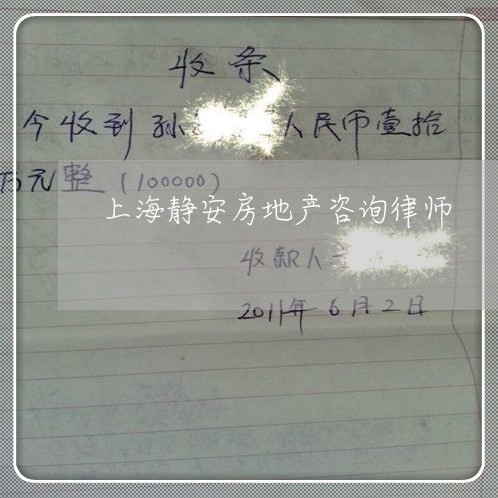 收条
今收到孙 人民币壹拾
万元整(100000)
上海静安房地产咨询律师
收款人
2011年6月2日